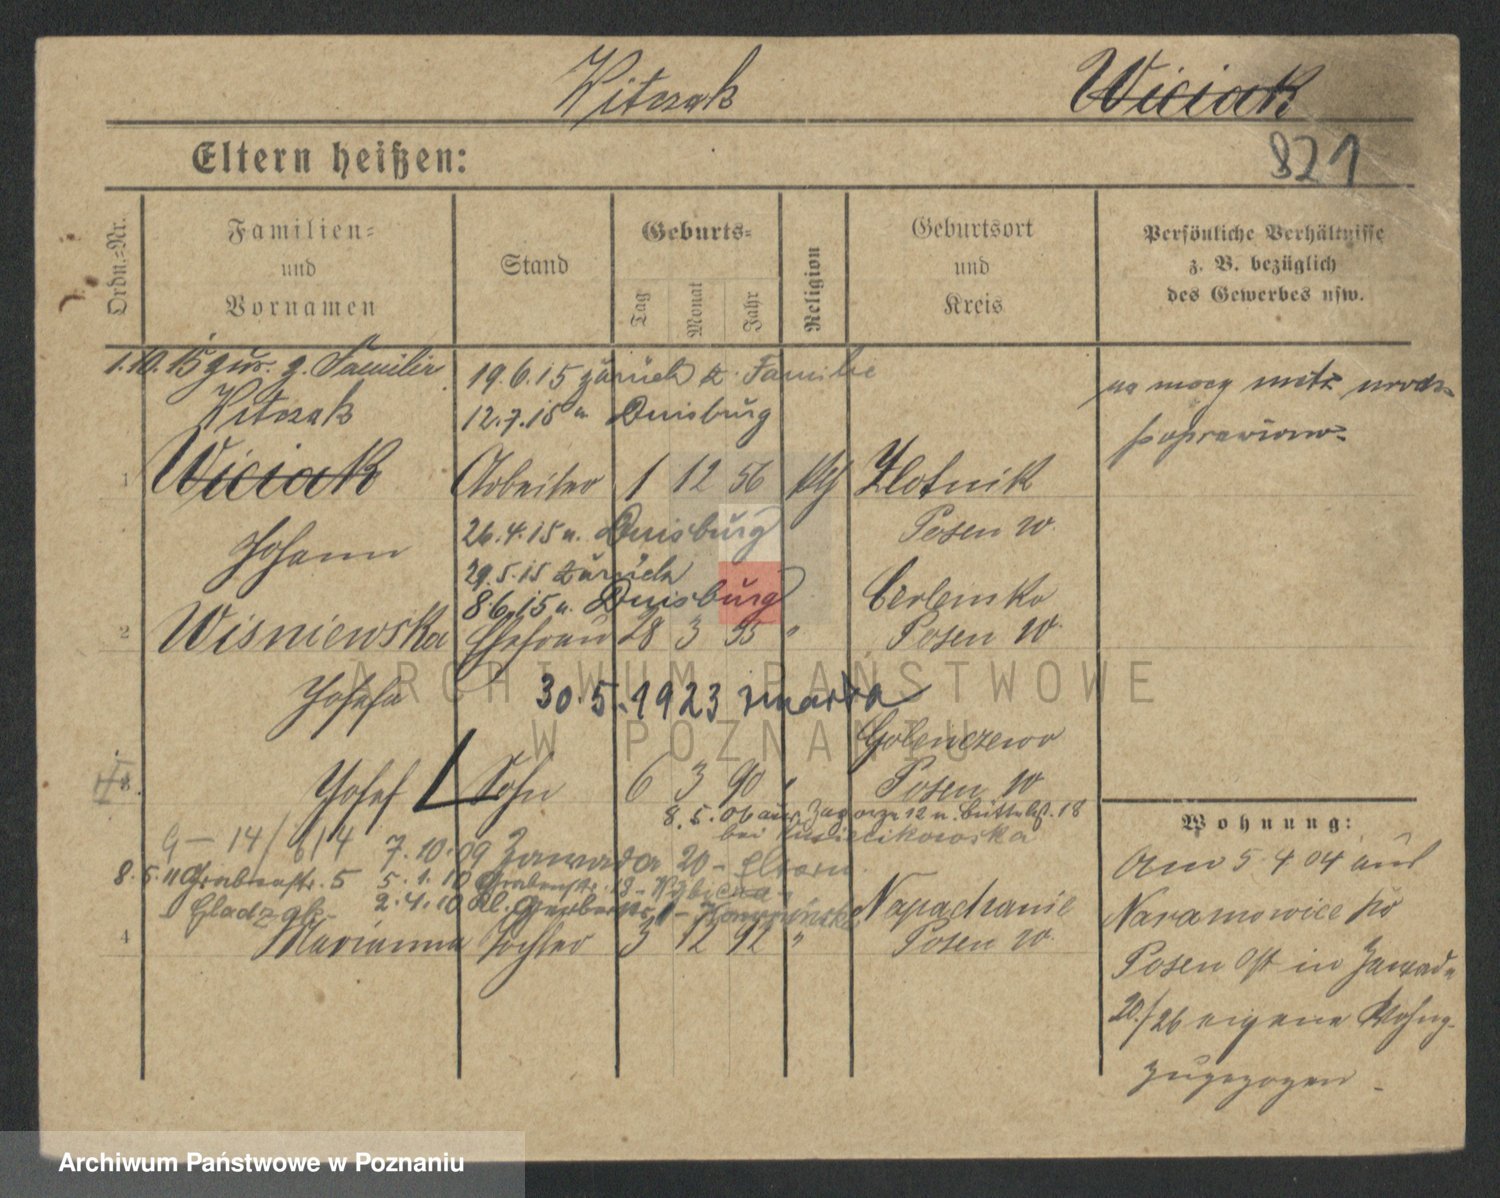 Witczak Wiciak
821
Eltern heißen:
Ordn.-Nr.
Familien-
und
Vornamen
Stand
Geburts-
Tag
Monat
Jahr
Religion
Geburtsort
und
Kreis
Persönliche Verhältnisse
z. B. bezüglich
des Gewerbes usw.
1.10.15 zur. z. Familie
19.6.15 zurück z. Familie
na mocy metr. urodz.
Witczak
12.7.15 n. Duisburg
poprawiono
1 Wiciak Arbeiter 1 12 56 kth Zlotnik
26.4.15 n. Duisburg Posen W.
Johann
29.5.15 zurück
8.6.15 n. Duisburg Cerlemko
2 Wisniewska Ehefrau 28 3 55 " Posen W.
Josefa
30.5.1923 zmarła
Golenczewo
3. Josef Sohn 6 3 90 " Posen W
8.5.06 aus Zagorze 12 n. Büttelst. 18
bei
G - 14/6 14 7.10.09 Zawada 20 - Eltern
8.5.11 Grabenstr. 5 5.1.10 Grabenstr. 18 -
2.4.10 Kl. Gerberstr. Napachanie
4 Marianna Tochter 3 12 92 " Posen W.
Wohnung:
Am 5.4.04 aus
Naramowice Kr.
Posen Ost in Zawade
20/26 eigene Wohng.
zugezogen -
ARCHIWUM PAŃSTWOWE
W POZNANIU
Archiwum Państwowe w Poznaniu